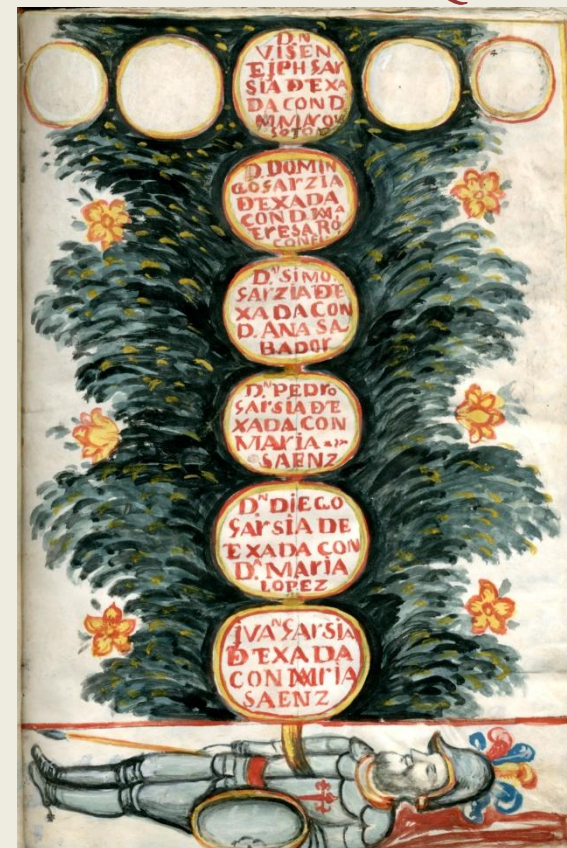 D.N
VISEN
SARSIA DEXA
DA CON D
D. DOMIN
GO SARZIA
DEXADA
CON D. MA
TERESA RO
D.N SIMO
SARZIA DE
XADA CON
D. ANA SA
BADOR
D.N PEDRO
SARSIA DE
XADA CON
MARIA
SAENZ
D.N DIEGO
SARSIA DE
EXADA CON
D.A MARIA
LOPEZ
IVAN SARSIA
DEXADA
CON MARIA
SAENZ